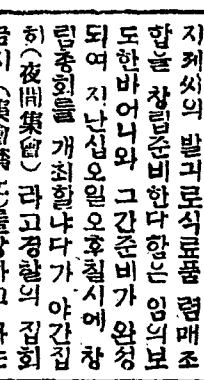 지제씨의 발긔로식료품 렴매조
합을 창립준비한다 함은 임의보
도한바어니와 그간준비가 완성
되여 지난십오일오후칠시에 창
림총회를 개최할냐다가 야간집
히(夜間集會) 라고경찰의 집회